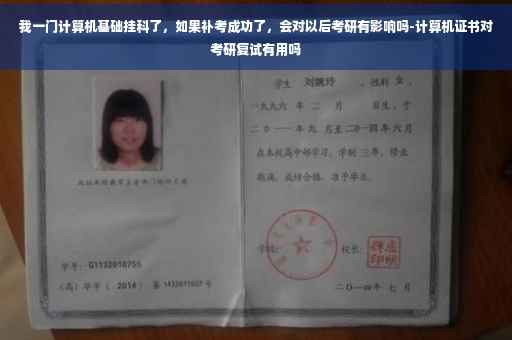 我一门计算机基础挂科了，如果补考成功了，会对以后考研有影响吗-计算机证书对
考研复试有用吗
学生 刘婉玲 ，性别 女 ，
一九九六 年 二 月 日生，于
二0一一年 九 月至二0一四年 六 月
在本校高中部学习，学制 三年，修业
期满，成绩合格，准予毕业。
学校： 校长：
学号： G1132010755
（高）毕字（ 2014 ）第 1432011007 号
二〇一四年 七 月